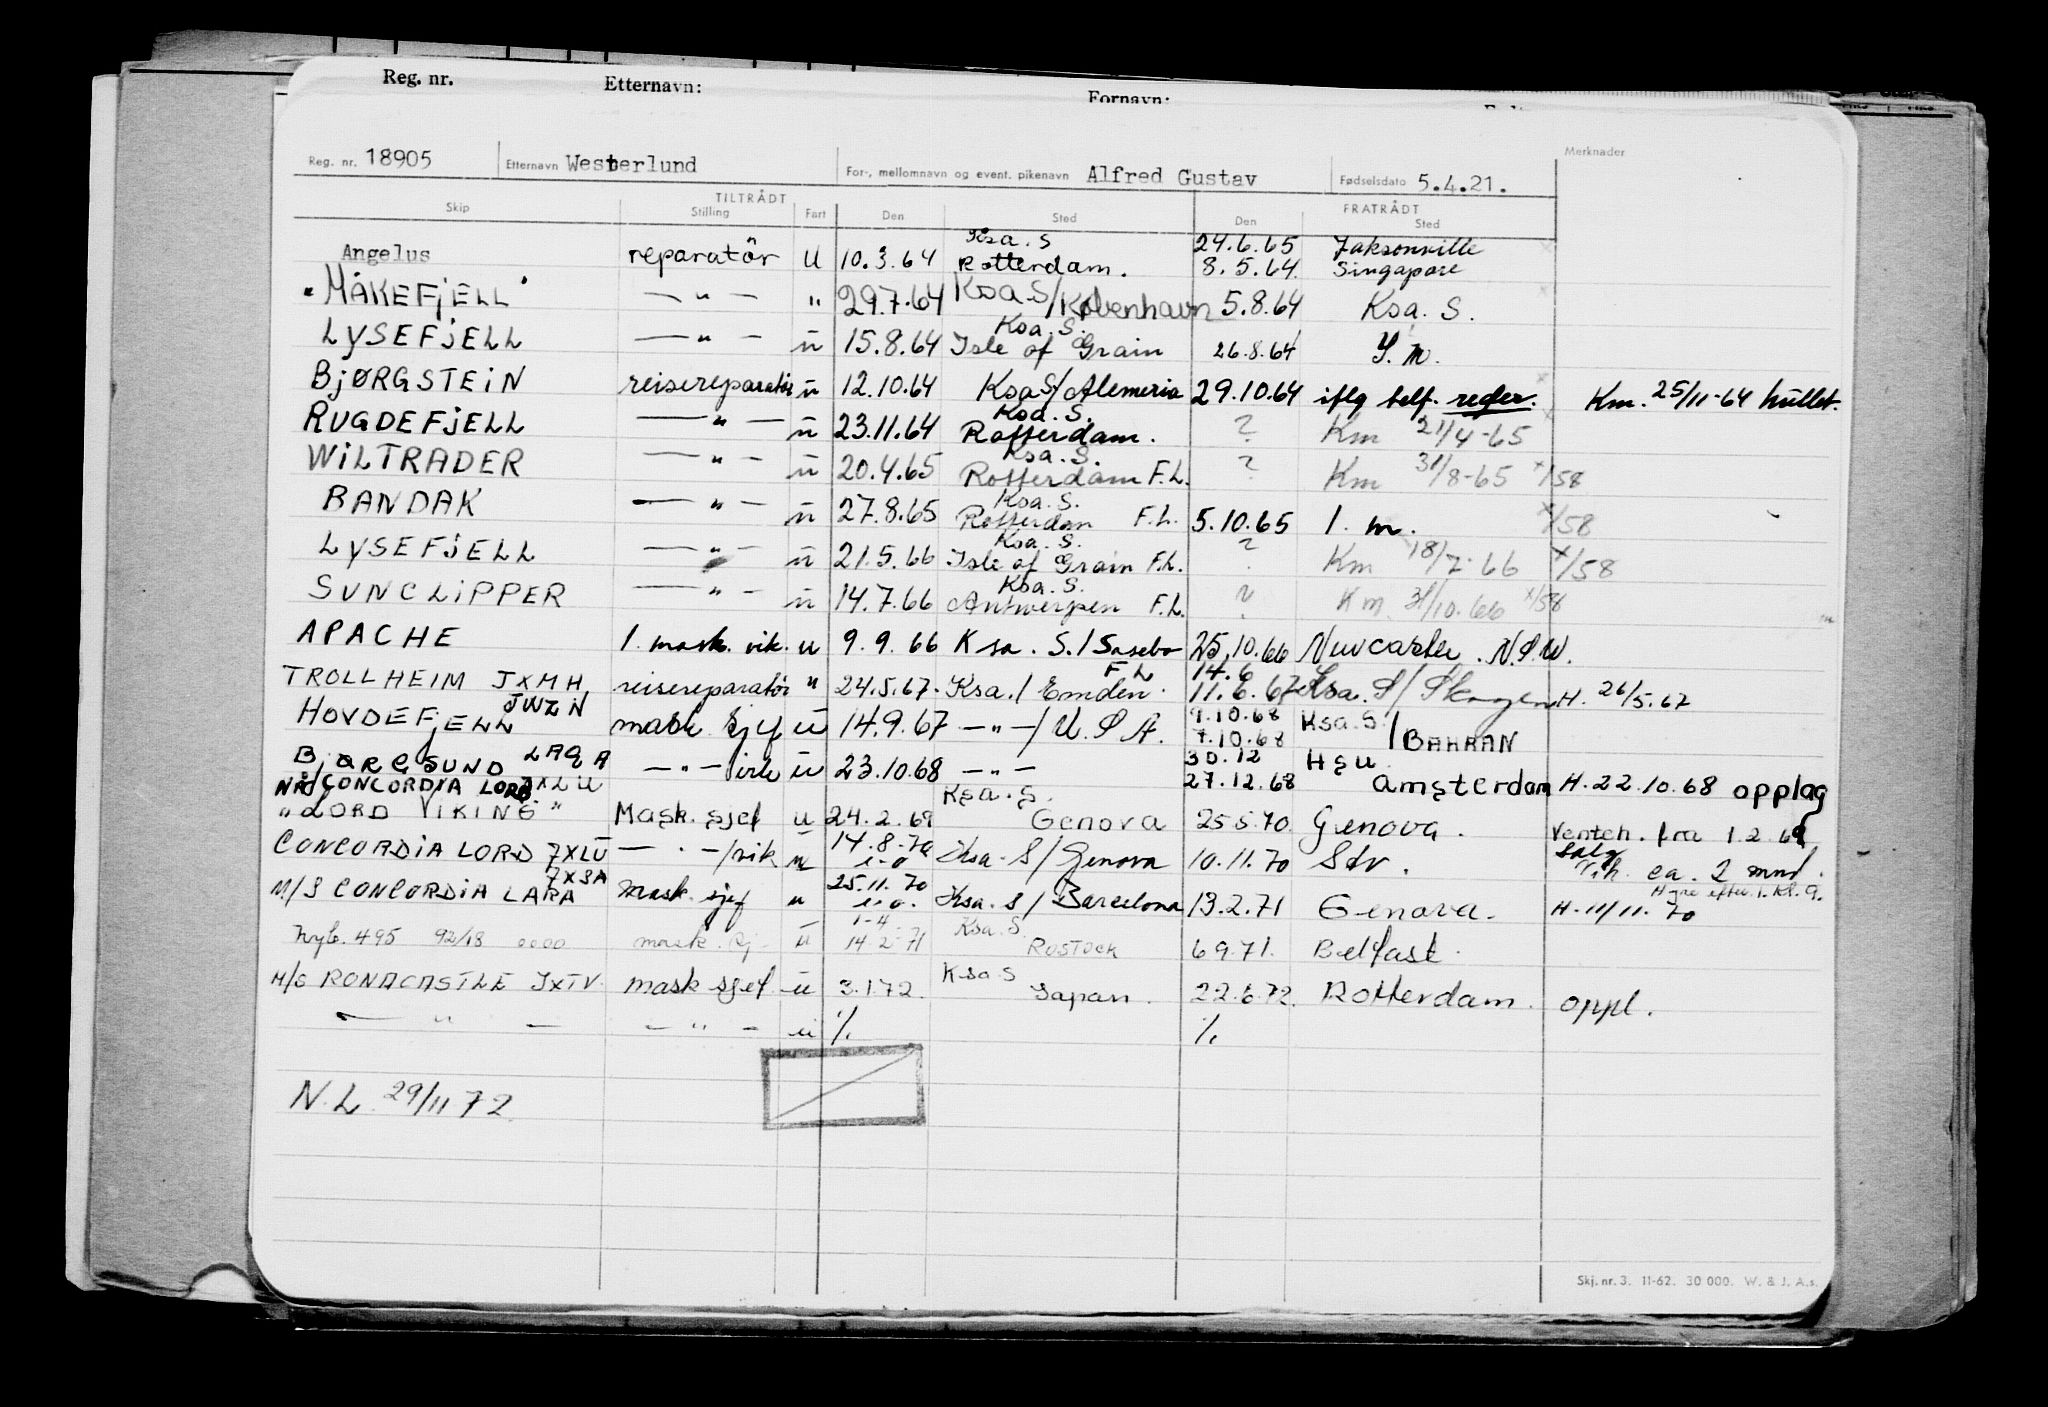 Reg. nr. Etternavn: Fornavn:
Reg. nr. 18905 Etternavn Westerlund For-, mellomnavn og event. pikenavn Alfred Gustav Fødselsdato 5.4.21. Merknader
TILTRÅDT FRATRÅDT
Skip Stilling Fart Den Sted Den Sted
Ksa. S 24.6.65 Jaksonville
Angelus reparatör U 10.3.64 Rotterdam. 8.5.64. Singapore
"MÅKEFJELL" — " — " 29.7.64 Ksa S/København 5.8.64 Ksa. S.
Ksa. S.
LYSEFJELL — " — u 15.8.64 Isle of Grain 26.8.64 S. m.
BJØRGSTEIN reisereparatør u 12.10.64 Ksa S/Alemeria 29.10.64 iflg telf. reder. Km. 25/11-64 hullet.
Ksa. S.
RUGDEFJELL — " — u 23.11.64 Rotterdam. ? Km 21/4-65
Ksa. S.
WILTRADER — " — u 20.4.65 Rotterdam F.L. ? Km 31/8-65 x/58
Ksa. S.
BANDAK — " — u 27.8.65 Rotterdam F.L. 5.10.65 1. m. x/58
Ksa. S.
LYSEFJELL — " — u 21.5.66 Isle of Grain F.L. ? Km 18/7-66 x/58
Ksa. S.
SUNCLIPPER — " — u 14.7.66 Antwerpen F.L. ? Km. 31/10.66 x/58
APACHE 1. mask. vik. u 9.9.66 Ksa. S./Sasebo 25.10.66 Nuvcastle. N.S.W.
F L 14.6
TROLLHEIM JXMH reisereparatør " 24.5.67. Ksa./Emden. 11.6.67 Ksa. S/Skagen H. 26/5.67
JWZN 9.10.68 Ksa. S.
HOVDEFJELL mask. sjef u 14.9.67 — " — / U.S.A. 7.10.68 /BAHRAN
LAQA 30.12 HSU.
BJØRGSUND — " — vik u 23.10.68 — " — 27.12.68 Amsterdam H. 22.10.68 opplag
NÅ/CONCORDIA LORD JXLU Ksa. S.
"LORD VIKING" Mask. sjef u 24.2.69 Genova 25.5.70. Genova. Venteh. fra 1.2.69
14.8.70 Salg
CONCORDIA LORD JXLU — " — /vik u Ksa. S/Genova 10.11.70 Sdv. ca. 2 mnd.
JXSA 25.11.70 Hyre efter 1. Kl. 9.
M/S CONCORDIA LARA Mask. sjef u Ksa. S/Barcelona 13.2.71 Genova. H. 11/11.70
1-4 Ksa. S.
Nyb. 495 92/18 0000 mask. sj u 14.2.71 Rostock 6.9.71. Belfast.
Ksa S
M/S RONACASTLE JXTV. mask sjef u 3.1.72. Japan. 22.6.72. Rotterdam. oppl.
— " — — " — u %. %.
N.L. 29/11 72
Skj. nr. 3. 11-62. 30 000. W. & J. A.s.